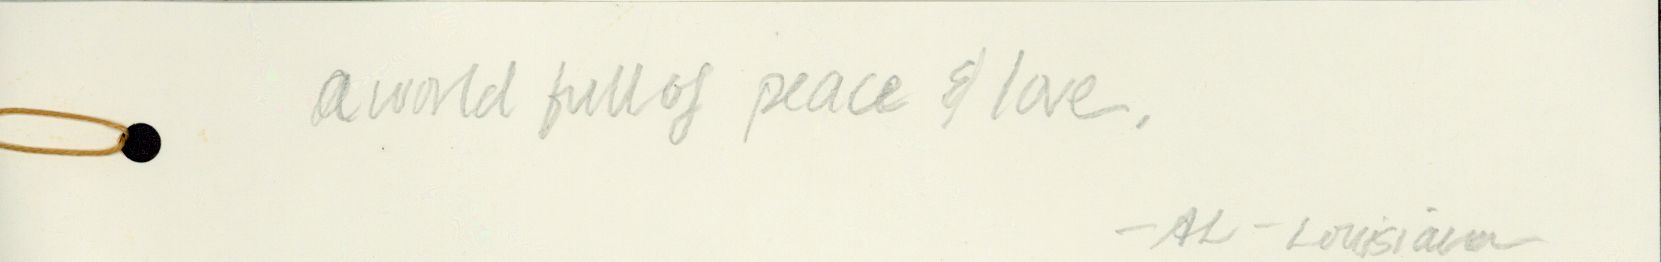 a world full of peace & love.
- AL - Louisiana